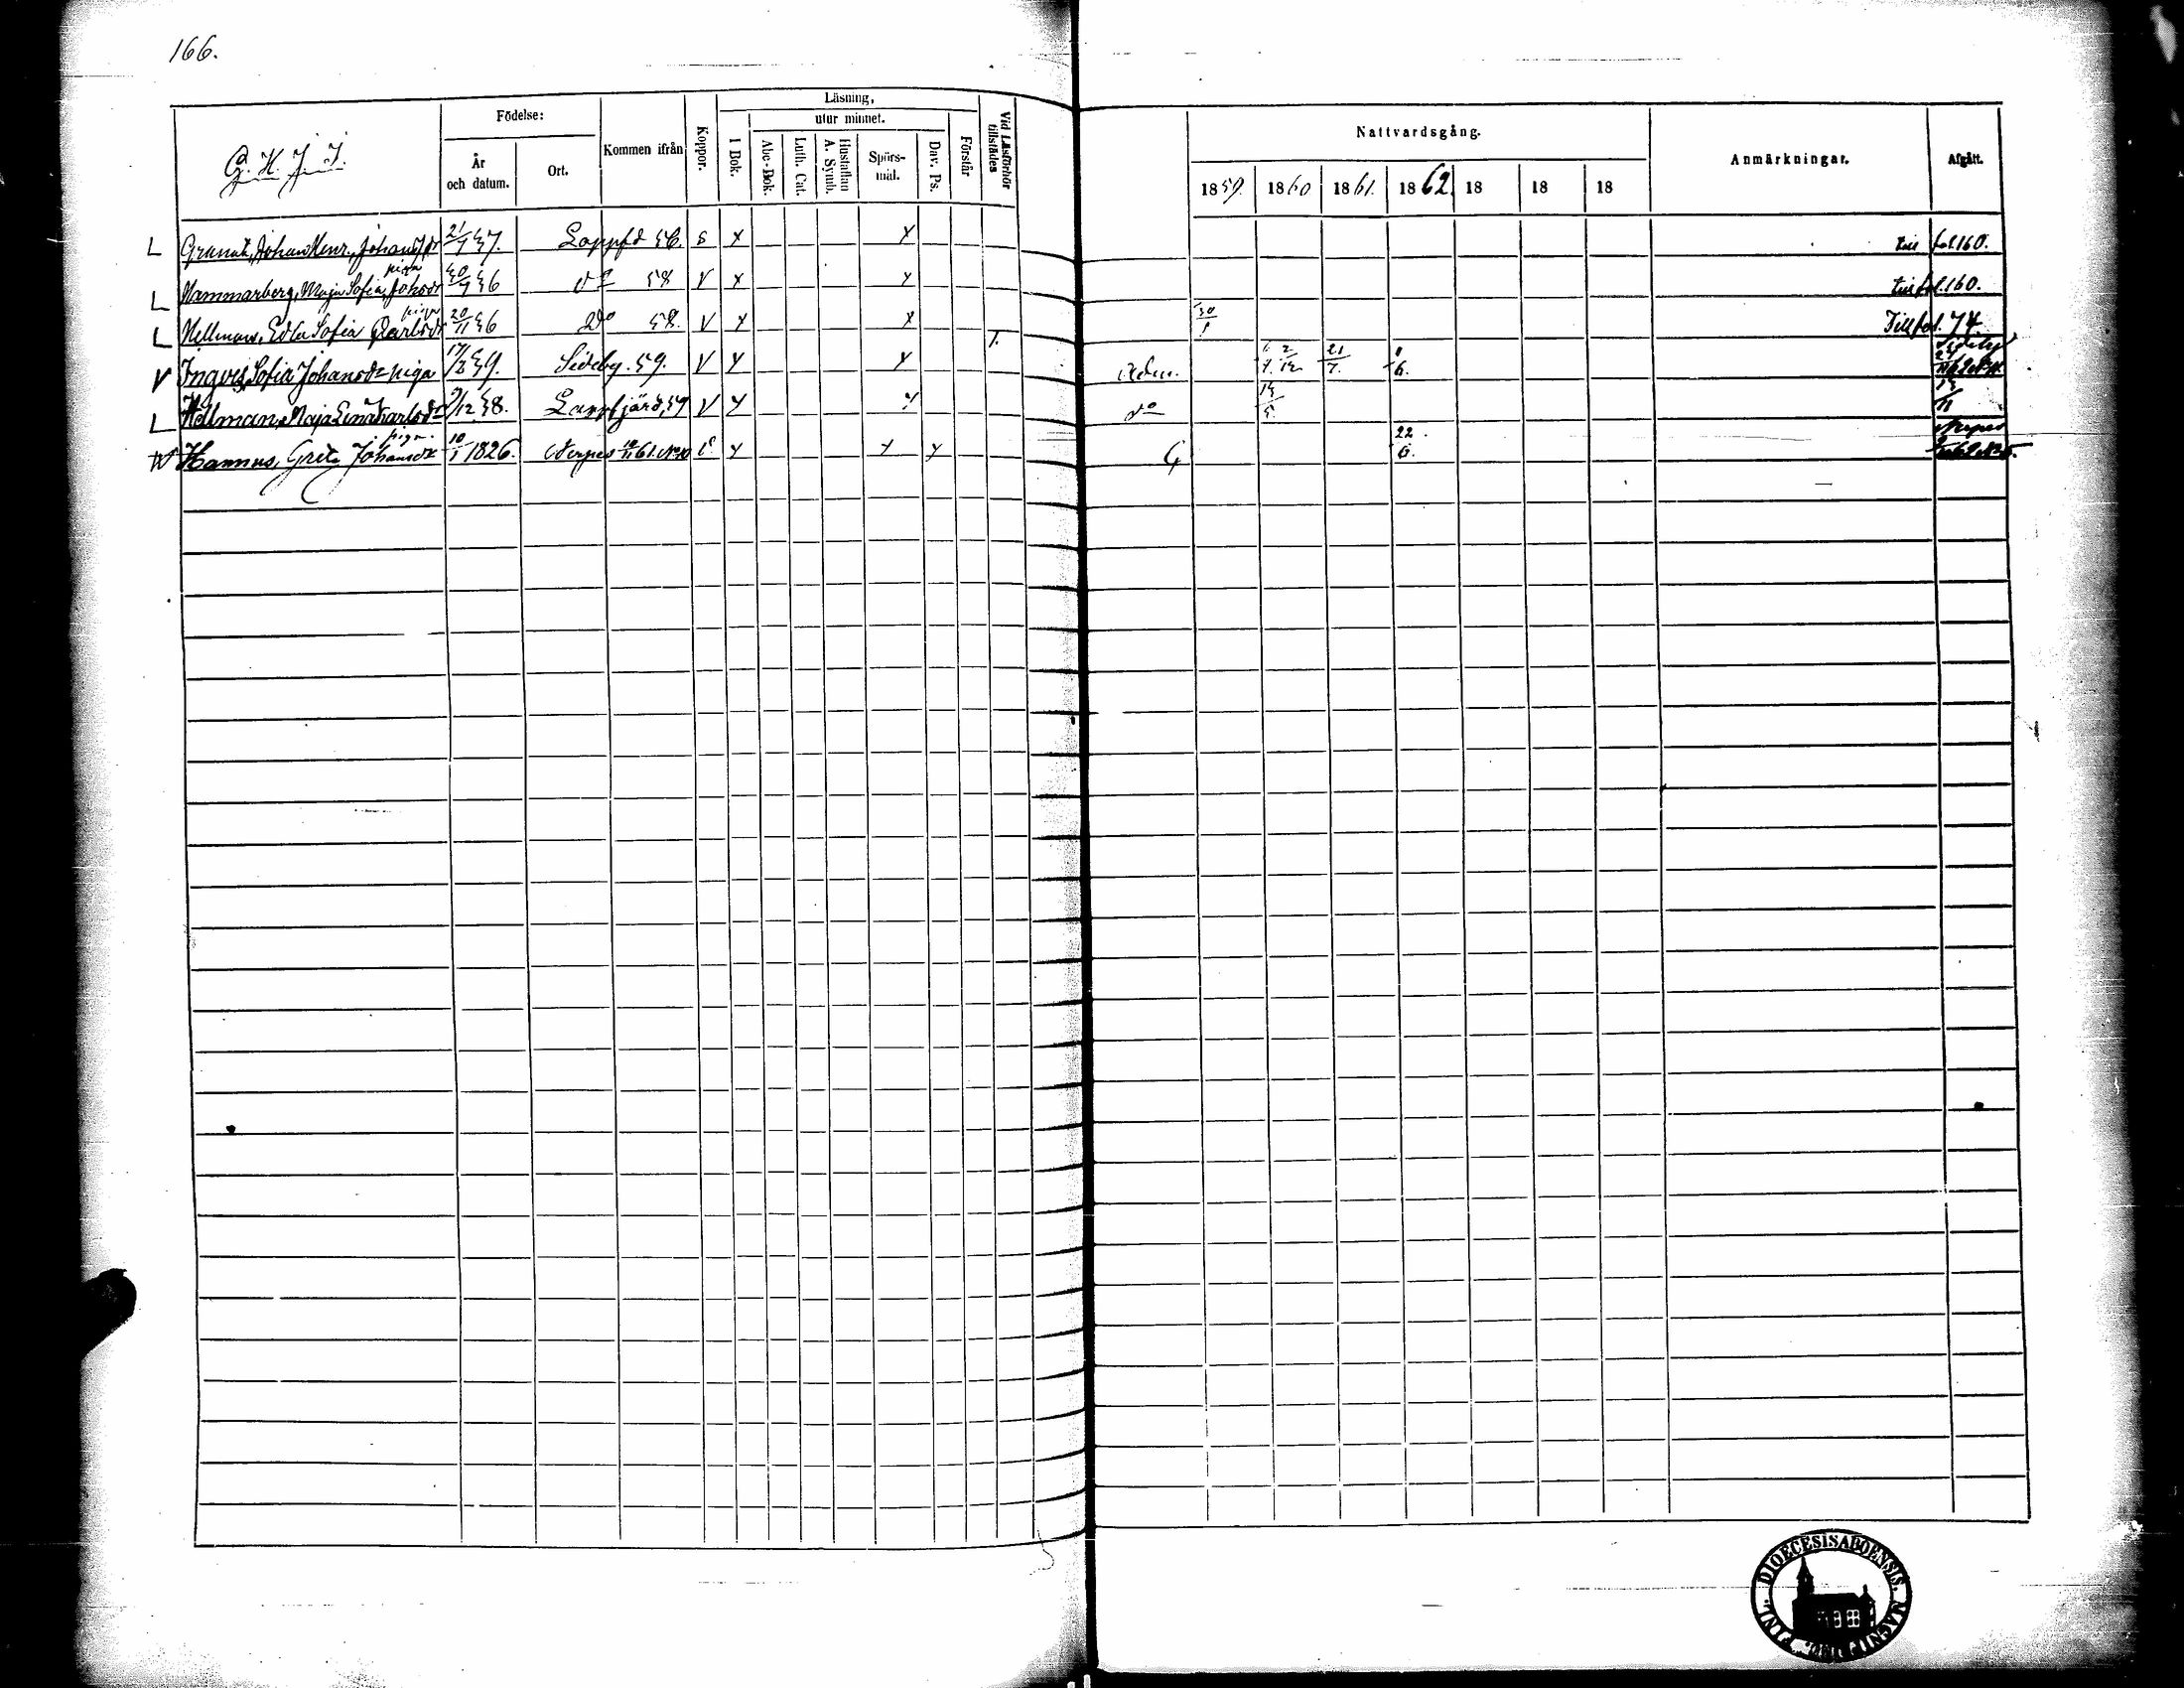 166.
G. H. J. I.
Födelse:
År och datum.
Ort.
Kommen ifrån
Koppor.
Läsning,
I Bok.
utur minnet.
Abc-Bok.
Luth. Cat.
Hustaflan A. Symb.
Spörs-mål.
Dav. Ps.
Förstår
Vid Läsförhör tillstädes
Nattvardsgång.
1859. 1860 1861. 1862. 18 18 18
Anmärkningar.
Afgått.
L Granat, Johan Henr., 21/7 37. Lappfd 56. s x x till fol. 160.
L Hammarberg, Maja Sofia, Johsdr piga 30/7 36 do 58 V x x till fol. 160.
L Hellman, Edla Sofia Carlsdr piga 20/11 36 do 58. V x x 1. Till fol. 74.
V Ingves, Sofia Johansdr piga 17/2 39. Sideby. 59. V x x 21/7. 1/6. Sideby
L Hellman, Maja Lena Karlsdr 9/12 38. Lappfjärd, 59 V x x do 13/5 13/11
W Hannus, Greta Johansdr piga. 10/1 1826. Nerpes x x x G 22/6. Nerpes
DIOECESIS ABOENSIS. MAGNI DUC. FINL.